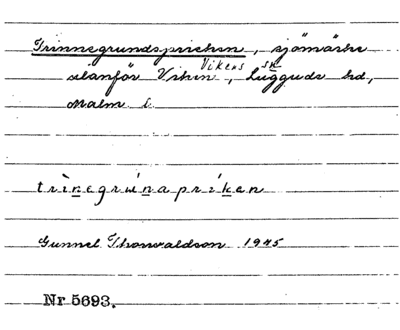 Trinnegrundspricken, sjömärke
utanför Viken, Vikens sn Luggude hd,
Malm l.
trinegrunapriken
Gunnel Thorvaldson 1945
Nr 5693.